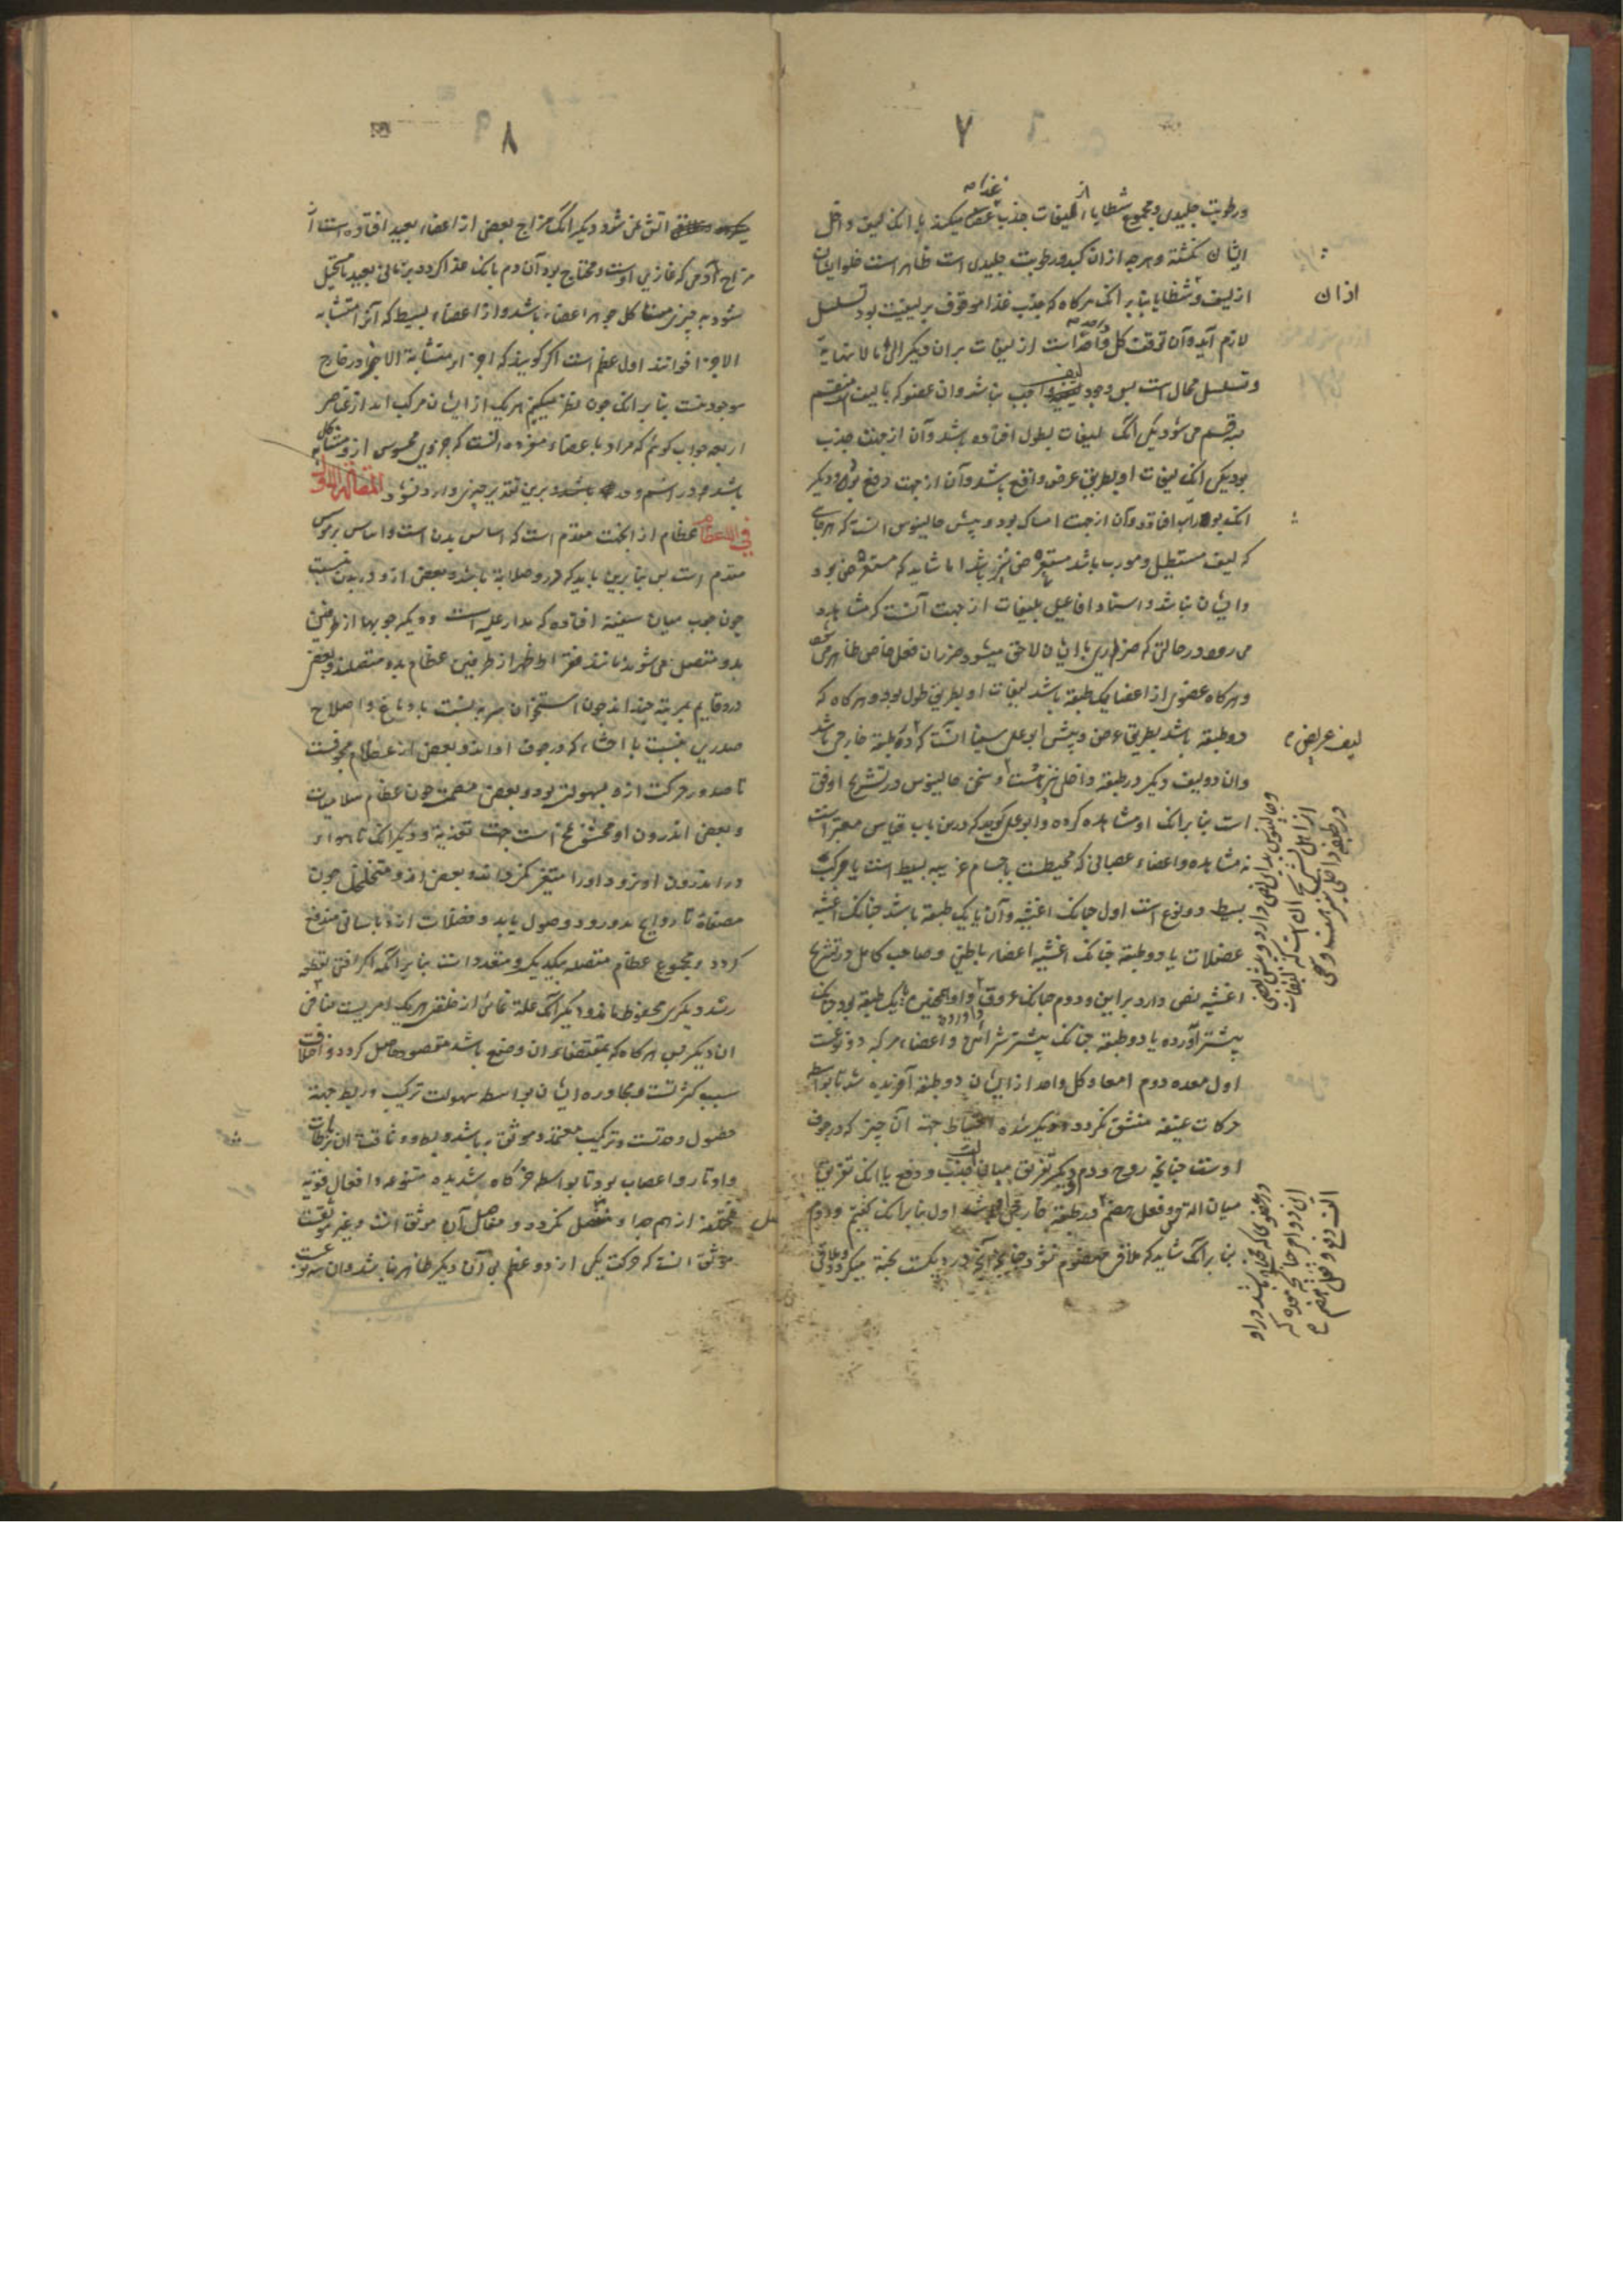 ۷
ورطوبت جلیدی و مجموع شظایا از لیفات جذب غذا میکنند با انک لیف داخل
ایشان نکشته و هرچه از ان کبد و رطوبت جلیدی است ظاهر است خلو ایشان
از لیف و شظایا بنابر انک هرکاه که جذب غذا موقوف بر لیفیت بود تسلسل
لازم آید و آن توقف کل واحد است از لیفات بران دیکر الی مالا نهایة
و تسلسل محال است پس وجود لیف واجب نباشد و ان عضو که بالیف است منقسم
به قسم می شود یکی انک لیفات بطول افتاده باشد و آن از جهت جذب
بود یکی انک لیفات او بطریق عرض واقع باشد و آن از جهت دفع بود و دیکر
انک بوراب افتاده و آن از جهت امساک بود و پیش جالینوس انست که هرجای
که لیف مستطیل و مورب باشد مستعرض نیز باشد اما شاید که مستعرض بود
و ایشان نباشد و اسناد افاعیل بلیفات از جهت آنست که مشاهده
می رود در حالتی که ضرری با ایشان لاحق میشود ضرر ان فعل خاص ظاهر می شود
و هرکاه عضوی از اعضا یک طبقه باشد لیفات او بطریق طول بود و هرکاه که
دو طبقه باشد بطریق عرض و پیش ابو علی سینا انست که در طبقه خارجی باشد
و ان دو لیف دیکر در طبقه داخلی نیز هست و سخن جالینوس در تشریح اوفق
است بنابر انک او مشاهده کرده و ابو علی کوید که درین باب قیاس معتبر است
نه مشاهده و اعضاء عصبانی که محیطست باجسام غریبه بسیط است یا مرکب
بسیط دو نوع است اول چنانک اغشیه و آن یا یک طبقه باشد چنانک اغشیه
عضلات یا دو طبقه چنانک اغشیه اعضاء باطنی و صاحب کامل در تشریح
اغشیه نص دارد براین و دوم چنانک عروق و او همچنین یا یک طبقه بود چنانک
بیشتر آورده یا دو طبقه چنانک بیشتر شرائین و اعضاء مرکبه دو نوعست
اول معده دوم امعا و کل واحد از ایشان دو طبقه آفریده شد تا بواسطه
حرکات عنیفه منشق نکردد و دیکر شده احتیاط جهة آن چیز که در جوف
اوست چنانچه روح و دم و دیکر تفریق میان آلت جذب و دفع یا انک تفریق
میان آلت و فعل هضم و در طبقه خارجی اول بنابر انک کفتیم و دوم
بنابر انک شاید که ملاقی مهضوم نشود چنانچه آنچه در دیکست پخته میکردد و ملاقی
ازان
لیف عرایض
و جالینوس بر این نص دارد و پیش بعضی
از اهل تشریح ان است که لیفات
در طبقه داخلی نیز هست و سخن
در عضوی که محل باشد در او
این دو امر چنانچه معده که
آلت دفع و محل هضم
۸
آتش نمی شود دیکر انک مزاج بعضی از اعضاء بعید افتاده است از
مزاج دمی که غاذی اوست و محتاج بود آن دم بانک غذا کردد بزمانی بعید مستحیل
شود به چیزی مشاکل جوهر اعضاء باشد و از اعضاء بسیط که آنرا متشابه
الاجزا خوانند اول عظم است اکر کویند که اجزاء متشابة الاجزا در خارج
موجود نیست بنابر انک چون نظر میکنیم هریک از ایشان مرکب اند از عناصر
اربعه جواب کوئیم که مراد با عضاء مفرده انست که جزوی محسوس از و مشارک کل
باشد در اسم و حد باشد و برین تقدیر چیزی وارد نشود المقالة الاولی
فی العظام عظام از انجهت مقدم است که اساس بدن است و اساس بر هر کس
مقدم است پس بنابرین باید که در و صلابة باشد و بعضی از و در بدن نسبت
چون چوب میان سفینه افتاده که مدار علیه است و دیکر چوبها از طرفین
بدو متصل می شوند مانند فقرات ظهر از طرفین عظام بدو متصلند و بعضی
در و قایم بمرتبه چنداند چون استخوان سر به نسبت با دماغ و اضلاع
صدر به نسبت با احشاء که در جوف او اند و بعضی از عظام مجوفست
تا صدور حرکت از و بسهولت بود و بعضی مصمت چون عظام سلامیات
و بعضی اندرون او محشو بمخ است جهت تغذیه و دیکر انک تا هواء
در اندرون او نرود و او را متغیر نکرداند و بعضی از و متخلخل چون
مصفاة تا روایح بدو رود و وصول یابد و فضلات از و باسانی مندفع
کردد و مجموع عظام متصله بیکدیکر و متعدد است بنابر انکه اکر افتی بعظمی
رسد دیکری محفوظ ماند و دیکر انک علة غائی از خلقت هریک امریست منافی
ان دیکر پس هرکاه که بمقتضاء ان وضع باشد مقصود حاصل کردد و اختلاف
سبب کثرتست و مجاوره ایشان بواسطه سهولت ترکیب و ربط جهة
حصول وحدتست و ترکیب معتمد و موثق به باشد و وثاقت ان برباطات
و اوتار و اعصاب بود تا بواسطه حرکات شدیده متنوعه و افعال قویه
مختلفه از هم جدا و منفصل نکردد و مفاصل آن موثق است و غیر موثقست
موثق انست که حرکت یکی از دو عظم بی آن دیکر ظاهر نباشد و ان سه نوعست